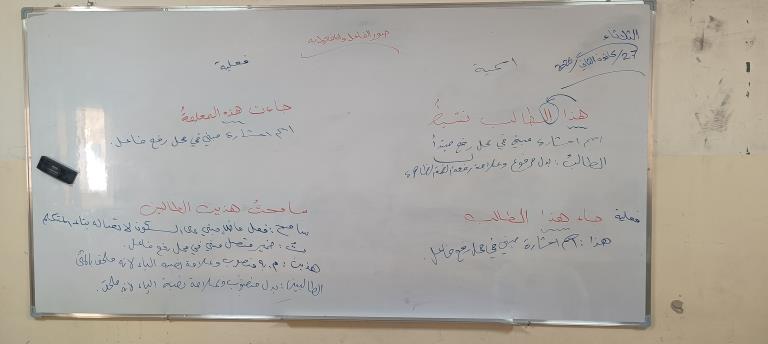 صور الفاعل والمفعول به
الثلاثاء
27/ كانون الثاني/
اسمية
فعلية
هذا الطالب نشيطٌ
اسم اشارة مبني في محل رفع مبتدأ
الطالبُ: بدل مرفوع وعلامة رفعه الضمة الظاهرة
فعلية
جاء هذا الطالب
هذا: اسم اشارة مبني في محل رفع فاعل.
جاءت هذه المعلمةُ
اسم اشارة مبني في محل رفع فاعل.
سامحتُ هذين الطالبين
سامح: فعل ماضٍ مبني على السكون لاتصاله بتاء المتكلم
تُ: ضمير متصل مبني في محل رفع فاعل.
هذين: م.به منصوب وعلامة نصبه الياء لانه ملحق بالمثنى
الطالبين: بدل منصوب وعلامة نصبه الياء لانه